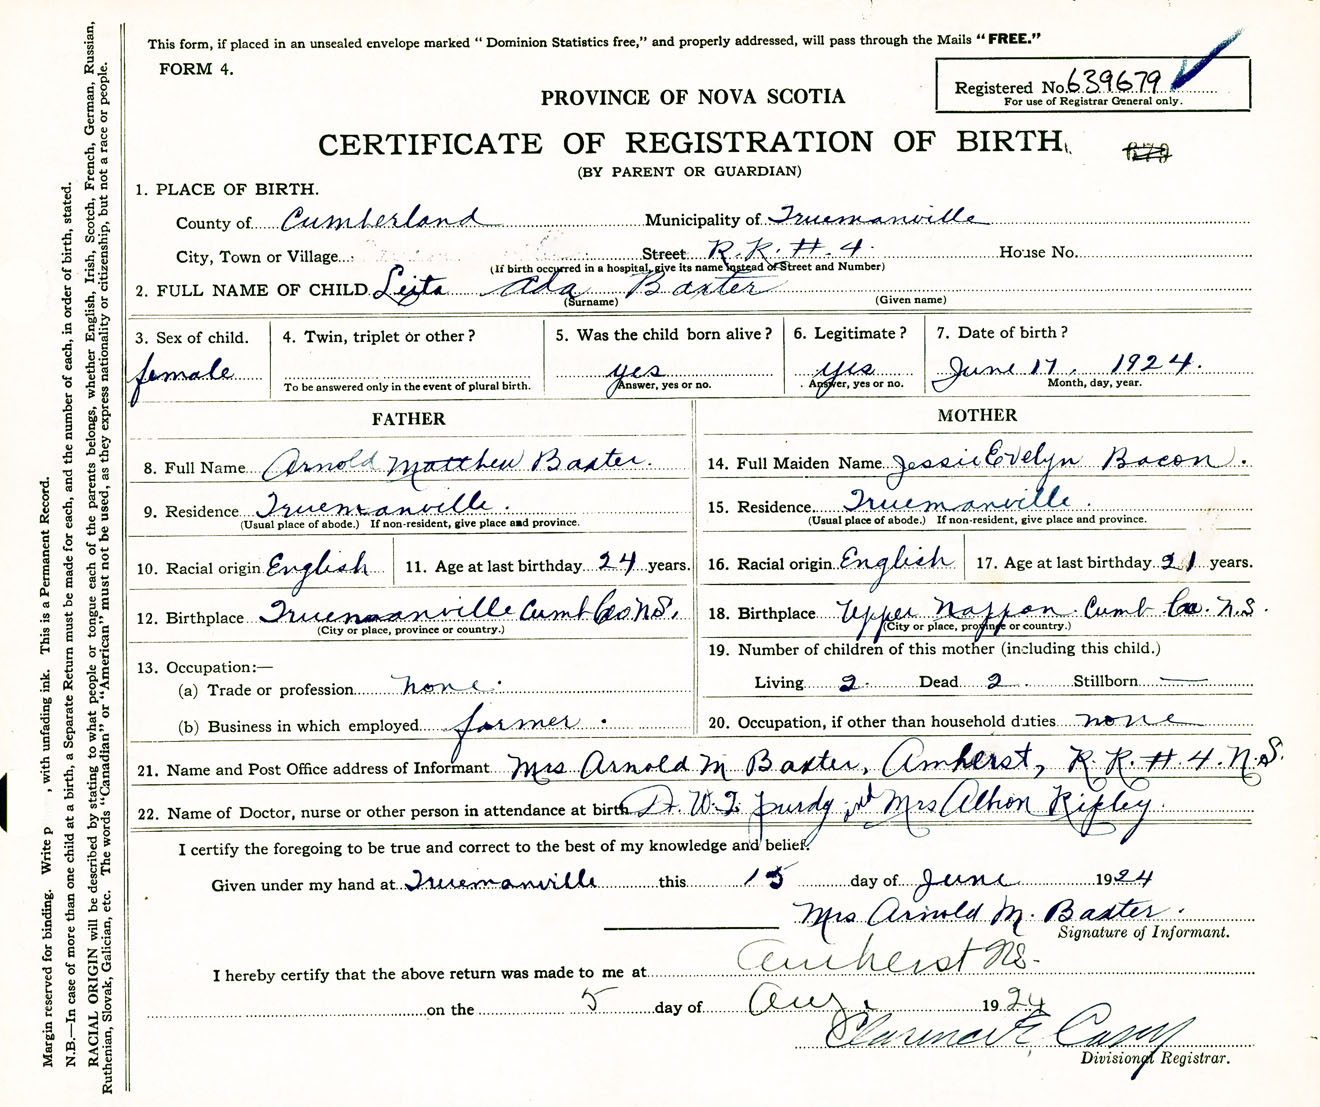 This form, if placed in an unsealed envelope marked " Dominion Statistics free," and properly addressed, will pass through the Mails "FREE."
FORM 4.
Registered No. 639679
For use of Registrar General only.
PROVINCE OF NOVA SCOTIA
CERTIFICATE OF REGISTRATION OF BIRTH
(BY PARENT OR GUARDIAN)
1. PLACE OF BIRTH.
County of Cumberland Municipality of Truemanville
City, Town or Village Street R.R. # 4. House No.
(If birth occurred in a hospital, give its name instead of Street and Number)
2. FULL NAME OF CHILD Leita Ada Baxter
(Surname) (Given name)
3. Sex of child. 4. Twin, triplet or other? 5. Was the child born alive? 6. Legitimate? 7. Date of birth?
female yes yes June 17, 1924.
To be answered only in the event of plural birth. Answer, yes or no. Answer, yes or no. Month, day, year.
FATHER MOTHER
8. Full Name Arnold Matthew Baxter. 14. Full Maiden Name Jessie Evelyn Bacon.
9. Residence Truemanville. 15. Residence Truemanville.
(Usual place of abode.) If non-resident, give place and province. (Usual place of abode.) If non-resident, give place and province.
10. Racial origin English 11. Age at last birthday 24 years. 16. Racial origin English 17. Age at last birthday 21 years.
12. Birthplace Truemanville Cumb Co. N.S. 18. Birthplace Upper Nappan Cumb Co. N.S.
(City or place, province or country.) (City or place, province or country.)
13. Occupation:— 19. Number of children of this mother (including this child.)
(a) Trade or profession none. Living 2. Dead 2. Stillborn —
(b) Business in which employed farmer. 20. Occupation, if other than household duties none
21. Name and Post Office address of Informant Mrs Arnold M Baxter, Amherst, R.R. # 4. N.S.
22. Name of Doctor, nurse or other person in attendance at birth Dr. W. T. Purdy Mrs Ripley.
I certify the foregoing to be true and correct to the best of my knowledge and belief.
Given under my hand at Truemanville this 15 day of June 1924
Mrs Arnold M. Baxter.
Signature of Informant.
I hereby certify that the above return was made to me at Amherst NS-
on the 5 day of Aug. 1924
Clarence E. Casey
Divisional Registrar.
Margin reserved for binding. Write , with unfading ink. This is a Permanent Record.
N.B.—In case of more than one child at a birth, a Separate Return must be made for each, and the number of each, in order of birth, stated.
RACIAL ORIGIN will be described by stating to what people or tongue each of the parents belongs, whether English, Irish, Scotch, French, German, Russian,
Ruthenian, Slovak, Galician, etc. The words "Canadian" or "American" must not be used, as they express nationality or citizenship, but not a race or people.